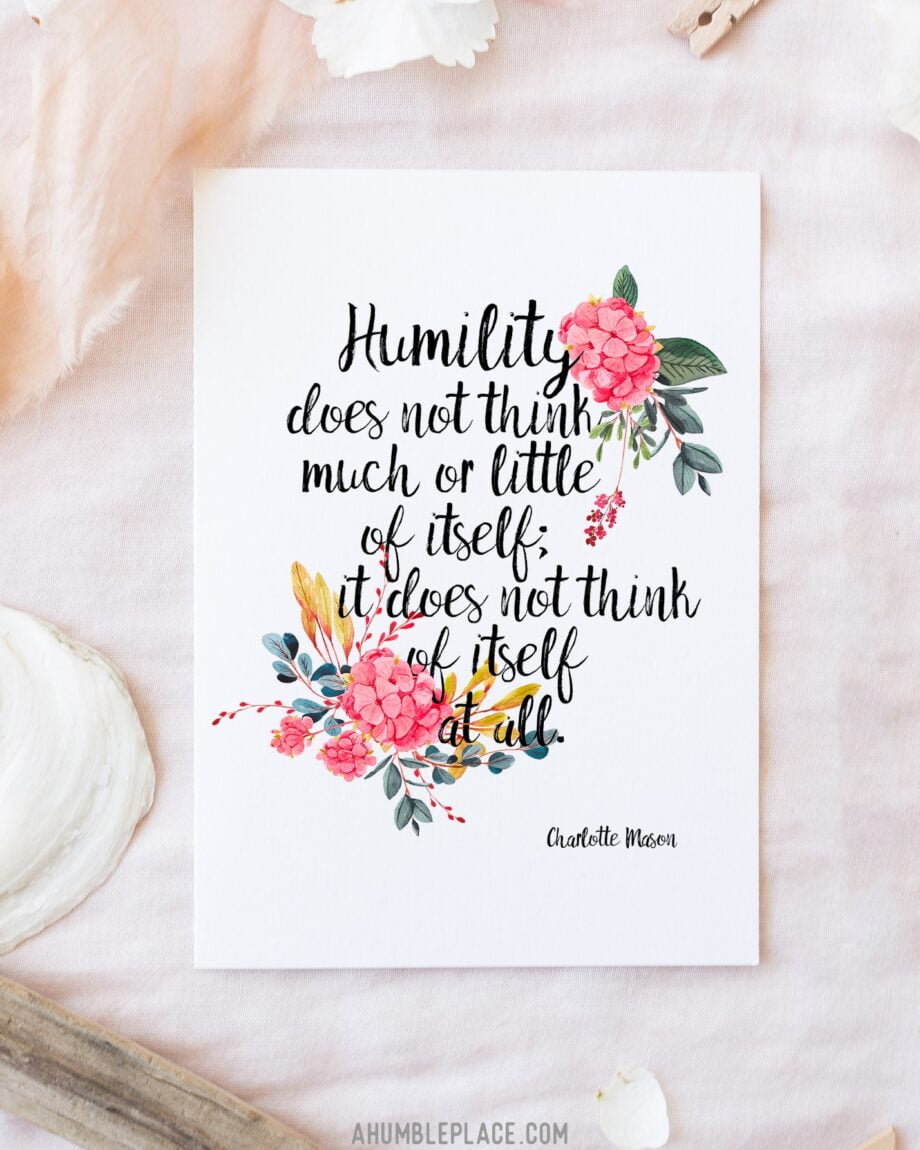 Humility
does not think
much or little
of itself;
it does not think
of itself
at all.
Charlotte Mason
AHUMBLEPLACE.COM